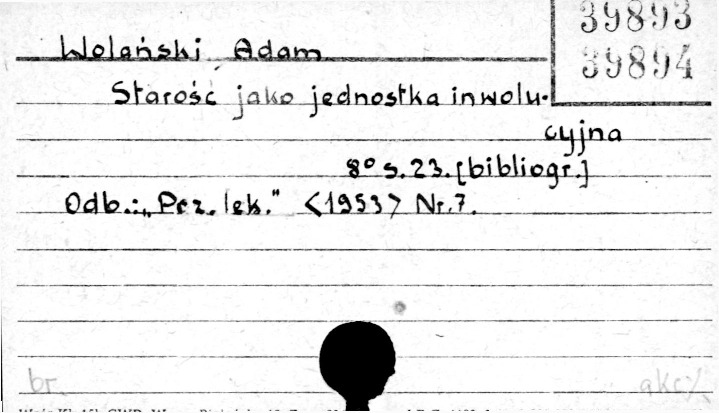 39893
39894
Wolański Adam
Starość jako jednostka inwolu-
cyjna
8° s. 23. [bibliogr.]
Odb.: „Prz. lek." <1953> Nr. 7.
br.
akc